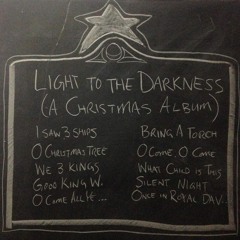 LIGHT TO THE DARKNESS
(A CHRISTMAS ALBUM)
I SAW 3 SHIPS
O CHRISTMAS TREE
WE 3 KINGS
GOOD KING W.
O COME ALL YE ...
BRING A TORCH
O COME, O COME
WHAT CHILD IS THIS
SILENT NIGHT
ONCE IN ROYAL DAV...